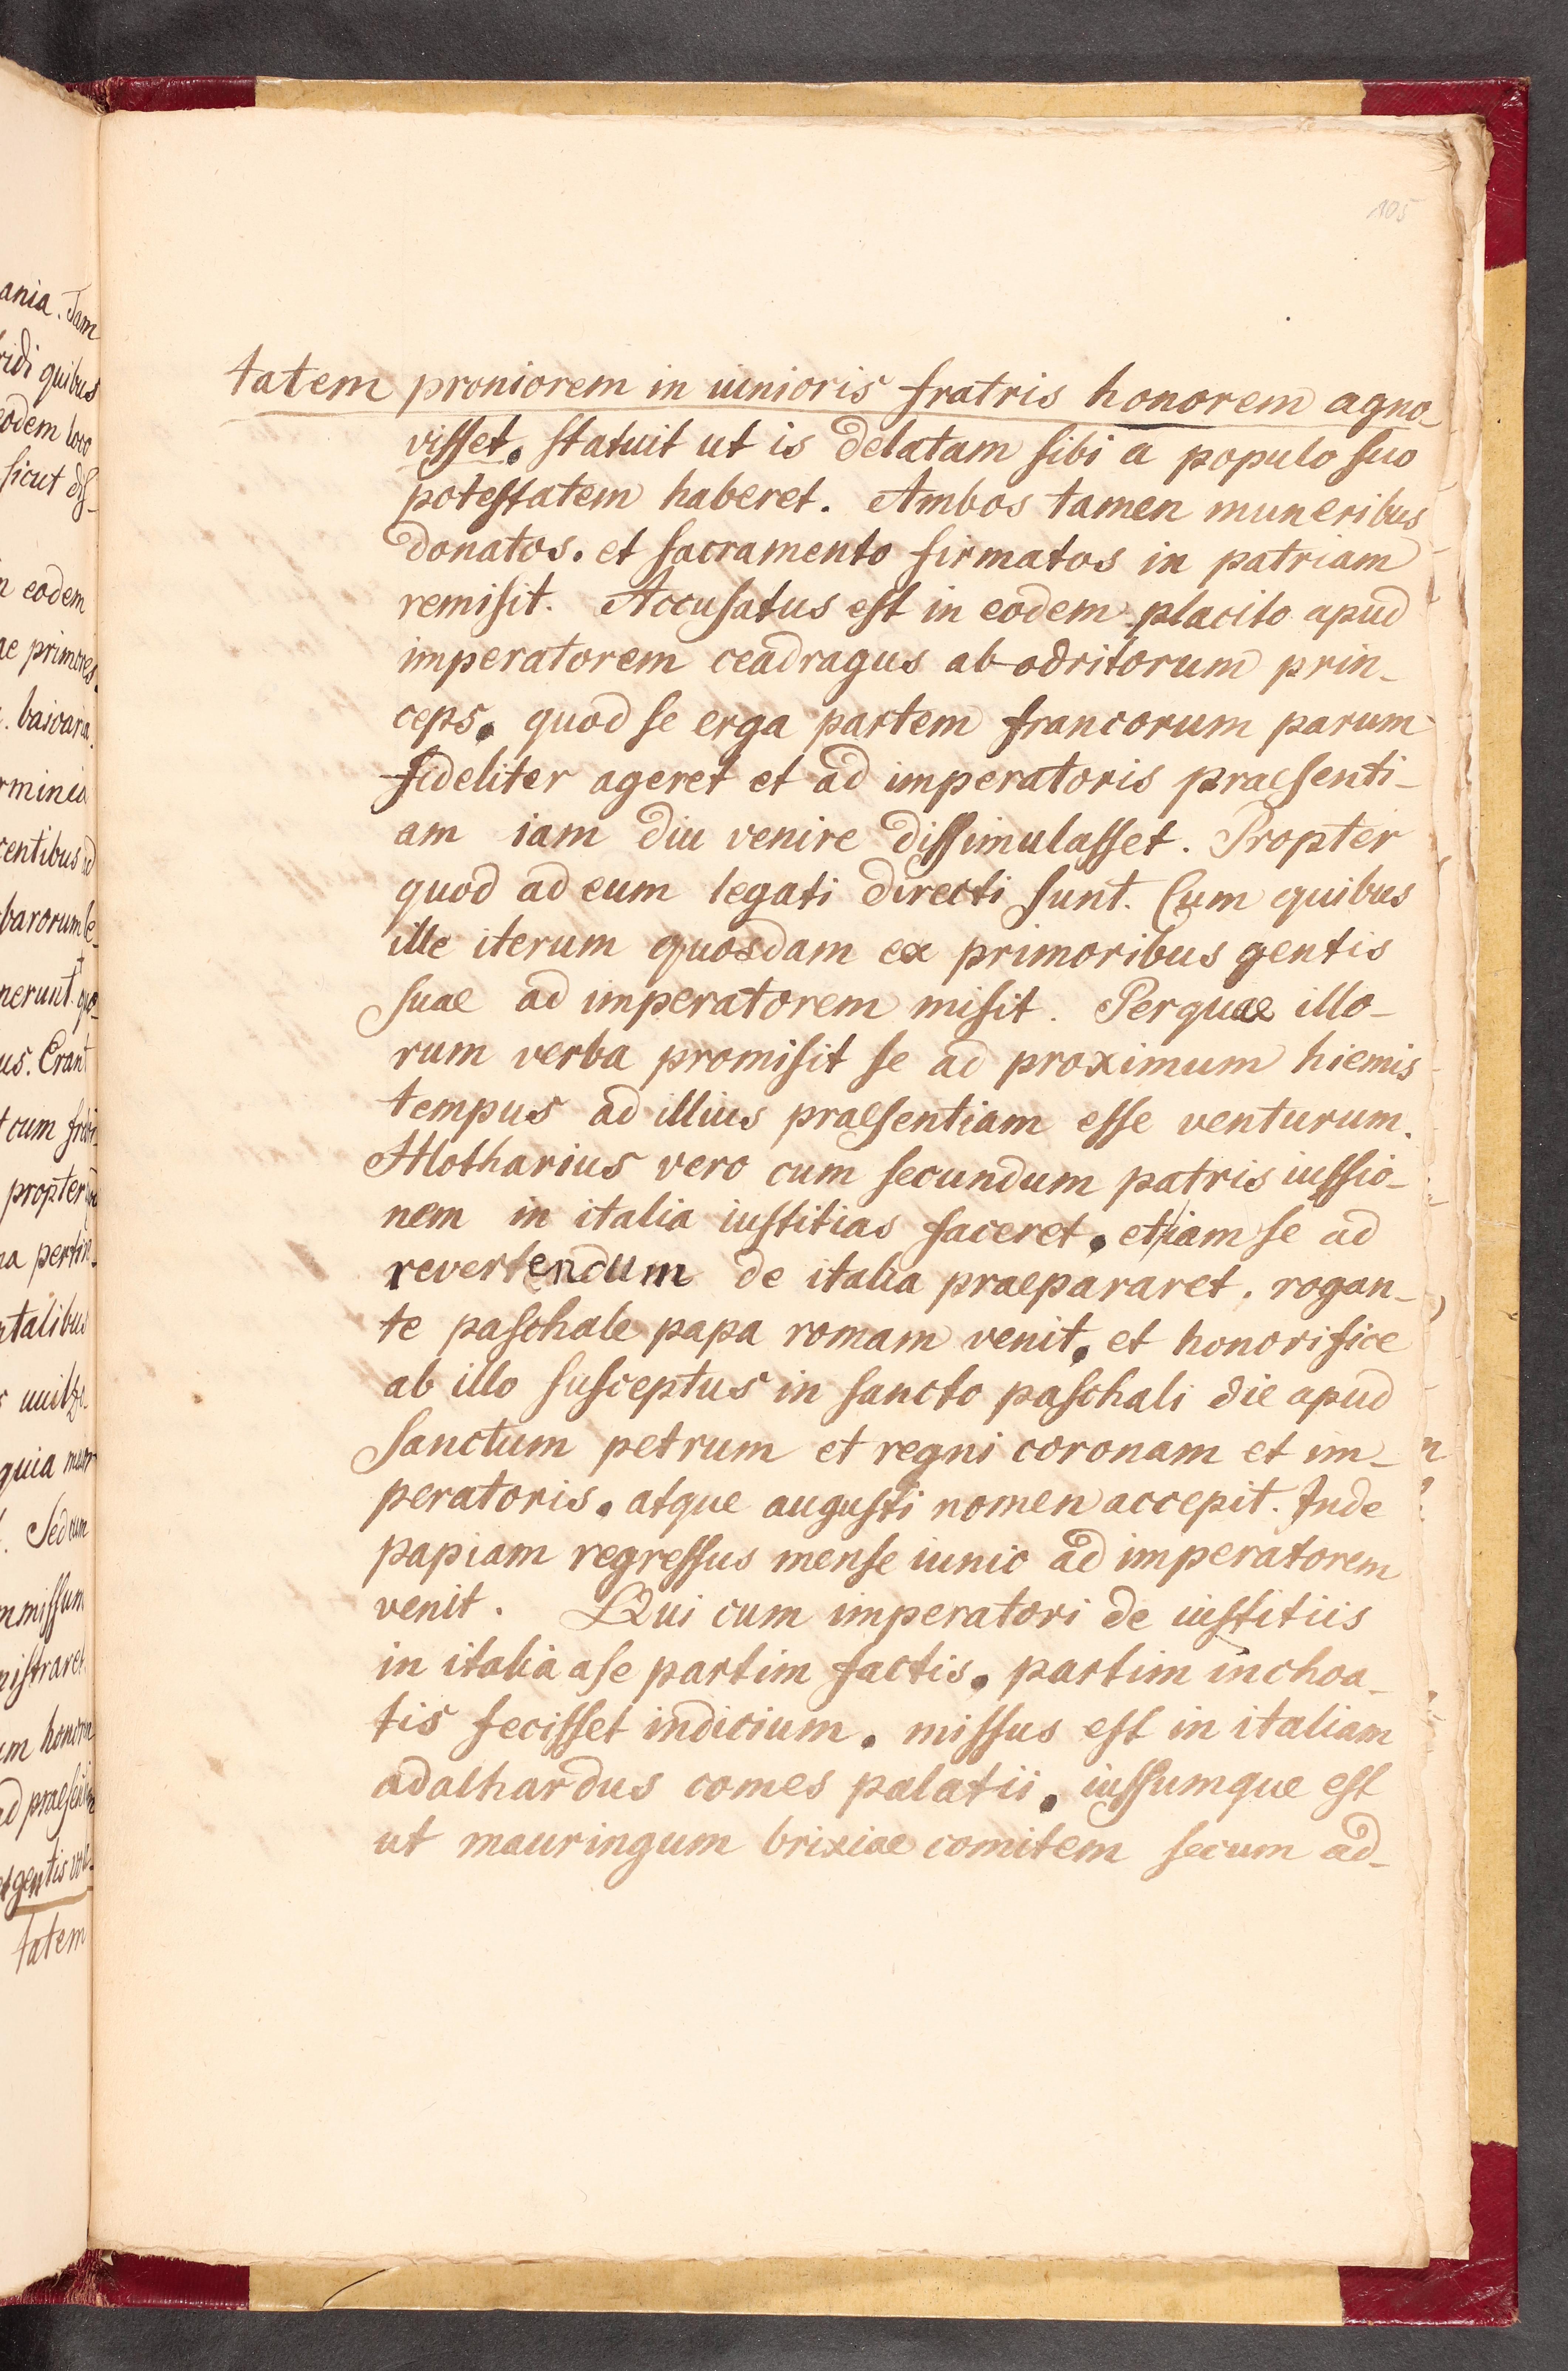 105
tatem proniorem in iunioris fratris honorem agno-
visset. statuit ut is delatam sibi a populo suo
potestatem haberet. Ambos tamen muneribus
donatos. et sacramento firmatos in patriam
remisit. Accusatus est in eodem placito apud
imperatorem ceadragus ab-odritorum prin-
ceps. quod se erga partem francorum parum
fideliter ageret et ad imperatoris praesenti-
am iam diu venire dissimulasset. Propter
quod ad eum legati directi sunt. Cum quibus
ille iterum quosdam ex primoribus gentis
suae ad imperatorem misit. Perquae illo-
rum verba promisit se ad proximum hiemis
tempus ad illius praesentiam esse venturum.
Hlotharius vero cum secundum patris iussio-
nem in italia iustitias faceret. et iam se ad
revertendum de italia praepararet. rogan-
te paschale papa romam venit. et honorifice
ab illo susceptus in sancto paschali die apud
Sanctum petrum et regni coronam et im-
peratoris. atque augusti nomen accepit. Inde
papiam regressus mense iunio ad imperatorem
venit. Qui cum imperatori de iustitiis
in italia a se partim factis. partim inchoa-
tis fecisset indicium. missus est in italiam
adalhardus comes palatii. iussumque est
ut mauringum brixiae comitem secum ad-